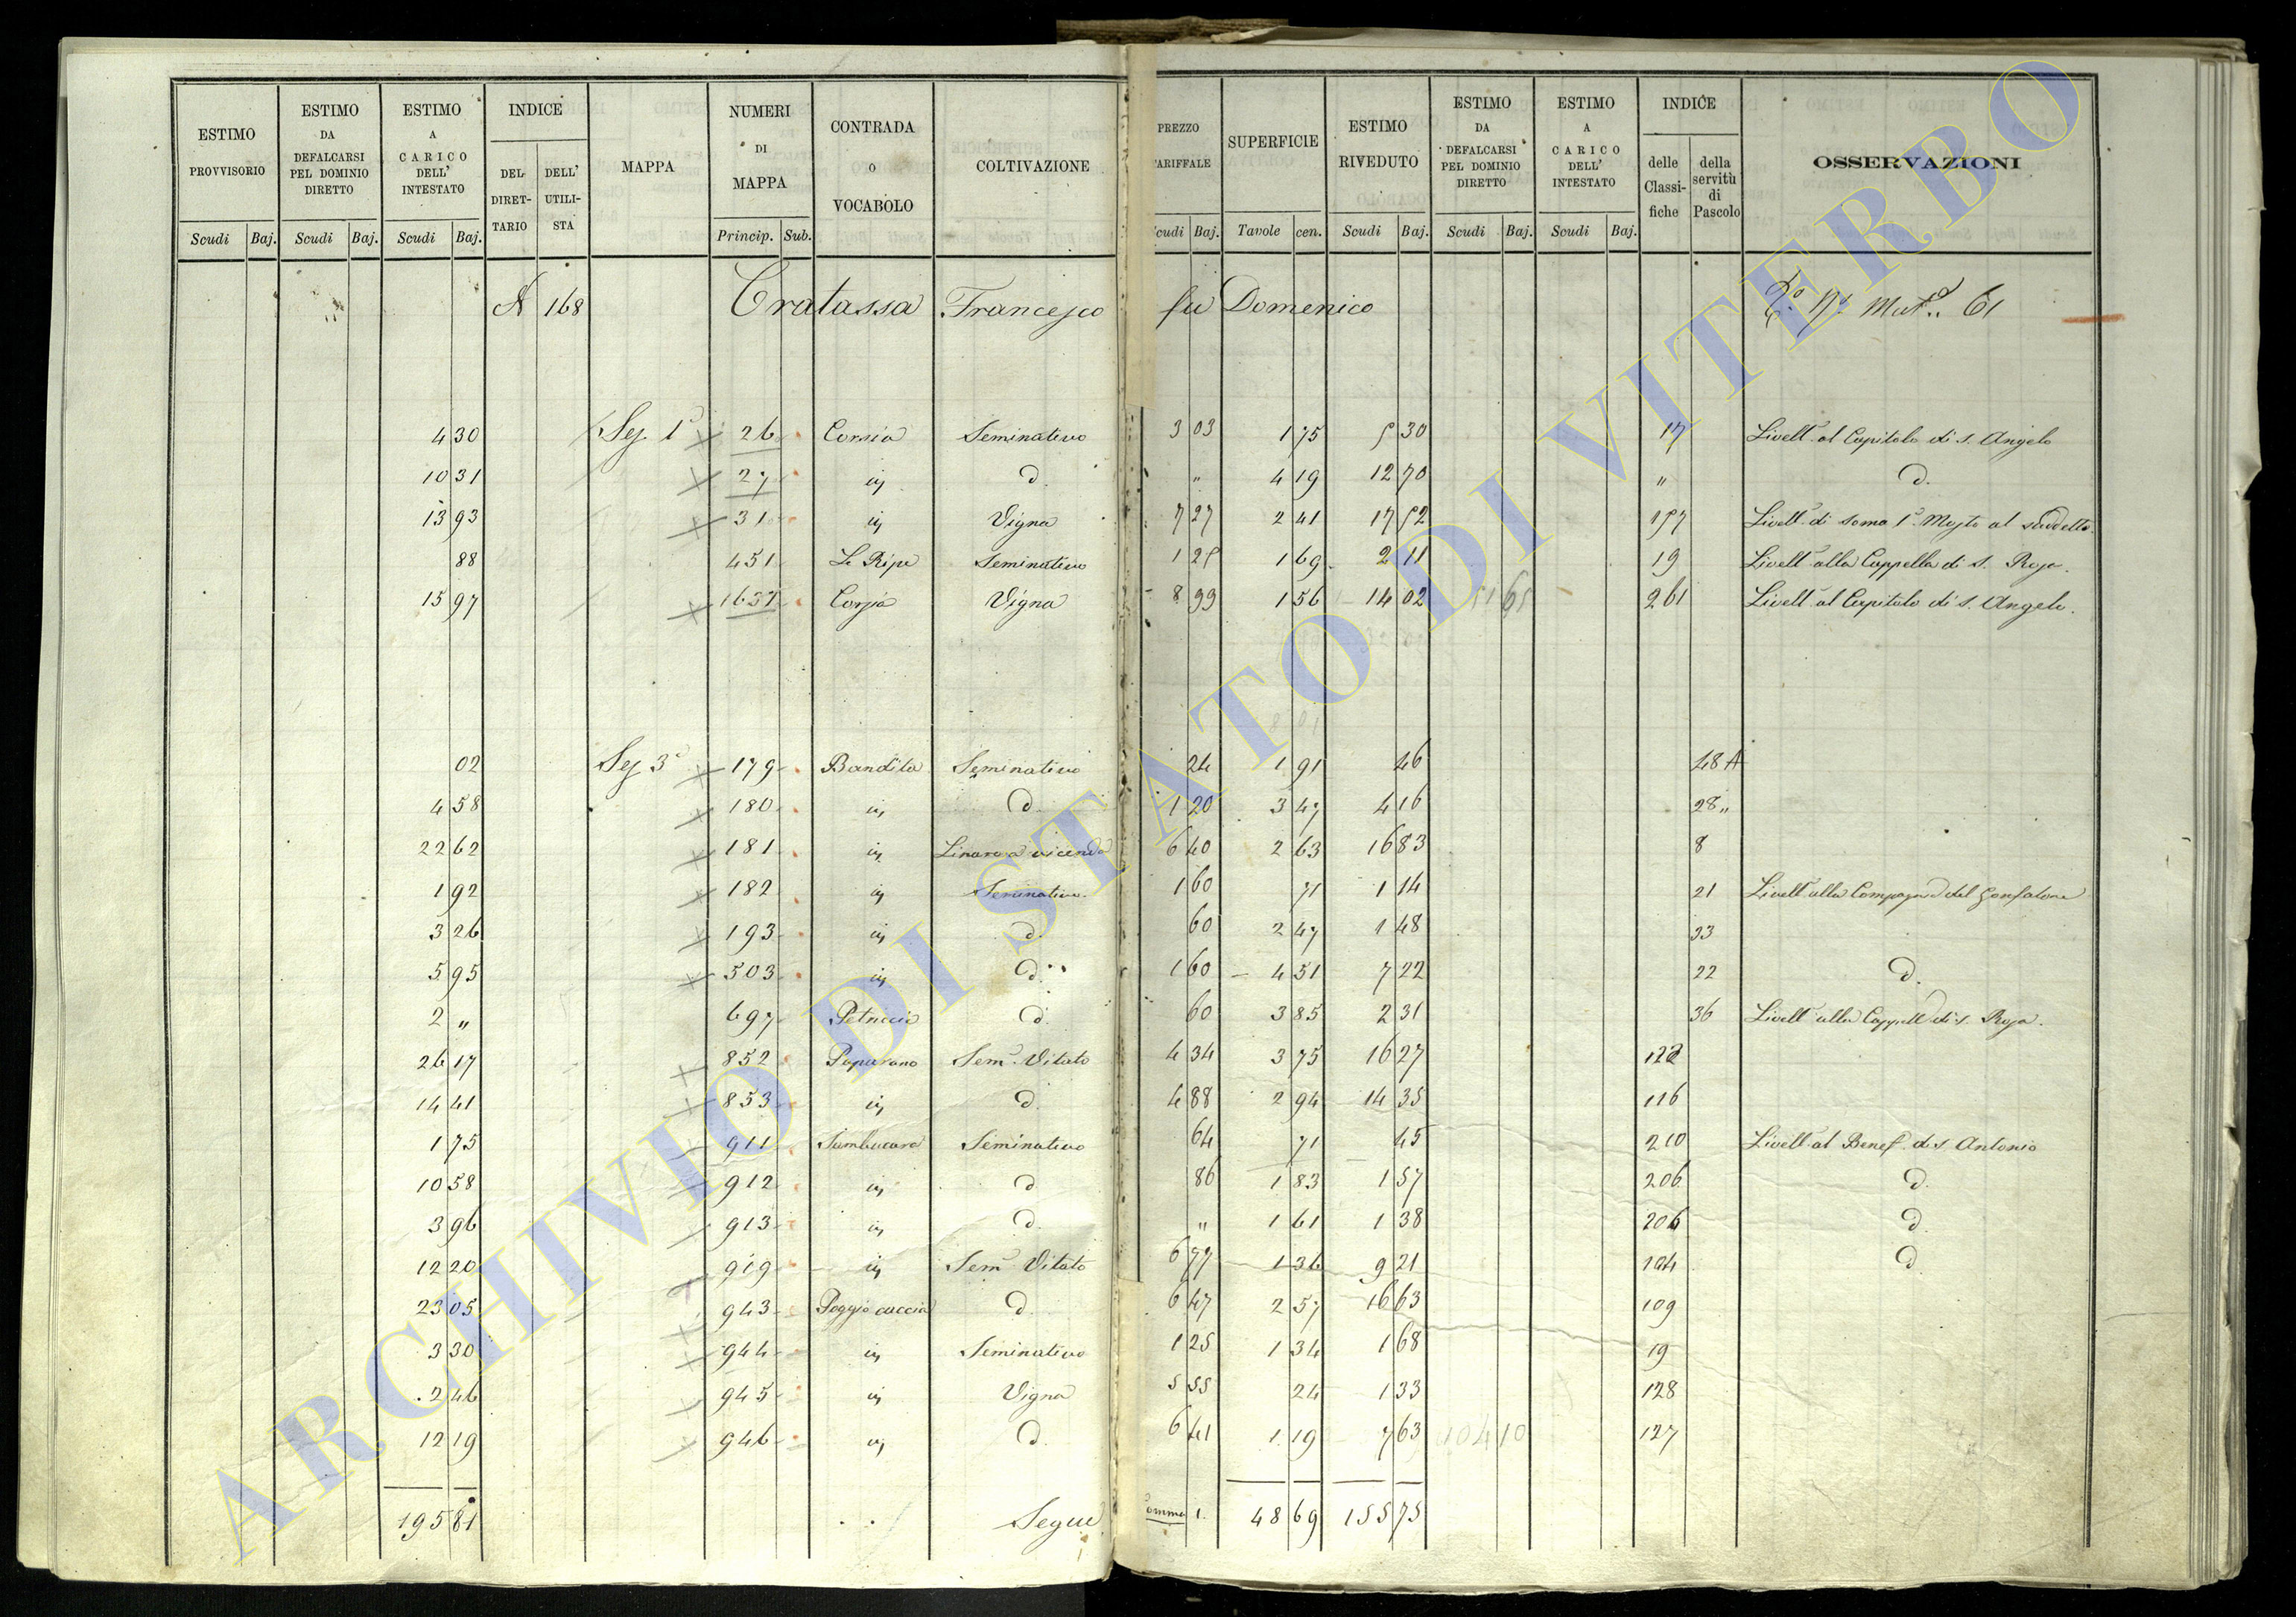 ESTIMO PROVVISORIO Scudi Baj. | ESTIMO DA DEFALCARSI PEL DOMINIO DIRETTO Scudi Baj. | ESTIMO A CARICO DELL' INTESTATO Scudi Baj. | INDICE DEL DIRET- TARIO DELL' UTILI- STA | MAPPA | NUMERI DI MAPPA Princip. Sub. | CONTRADA O VOCABOLO | COLTIVAZIONE | PREZZO TARIFFALE Scudi Baj. | SUPERFICIE Tavole cen. | ESTIMO RIVEDUTO Scudi Baj. | ESTIMO DA DEFALCARSI PEL DOMINIO DIRETTO Scudi Baj. | ESTIMO A CARICO DELL' INTESTATO Scudi Baj. | INDICE delle Classi- fiche della servitù di Pascolo | OSSERVAZIONI
N 168 Cratassa Francesco fu Domenico 61
4 30 Sez 1ª 26 Corsia Seminativo 3 03 1 75 5 30 17 Livell. al Capitolo di S. Angelo
10 31 27 in d. " 4 19 12 70 " d.
13 93 31 in Vigna 7 27 2 41 17 52 157 Livell. di soma 1ª Mosto al suddetto
88 451 Le Ripe Seminativo 1 25 1 69 2 11 19 Livell. alla Cappella di S.
15 97 1657 Corsia Vigna 8 99 1 56 14 02 51 65 261 Livell. al Capitolo di S. Angelo.
02 Sez 3ª 179 Bandita Seminativo 24 1 91 46 48 A
4 58 180 in d. 1 20 3 47 4 16 28 "
22 62 181 in Linaro a vicenda 6 40 2 63 16 83 8
1 92 182 in Seminativo 1 60 71 1 14 21 Livell. alla Compagnia del Gonfalone
3 26 193 in d. 60 2 47 1 48 33
5 95 503 in d. 1 60 4 51 7 22 22 d.
2 " 697 Petriccia d. 60 3 85 2 31 36 Livell. alla Cappell. di S.
26 17 852 Paparano Sem. Vitato 4 34 3 75 16 27 122
14 41 853 in d. 4 88 2 94 14 35 116
1 75 911 Sambucara Seminativo 64 71 45 210 Livell. al Benef. di S. Antonio
10 58 912 in d. 86 1 83 1 57 206 d.
3 96 913 in d. " 1 61 1 38 206 d.
12 20 919 in Sem. Vitato 6 77 1 36 9 21 104 d.
23 05 943 Poggio caccia d. 6 47 2 57 16 63 109
3 30 944 in Seminativo 1 25 1 34 1 68 19
2 46 945 in Vigna 5 55 24 1 33 128
12 19 946 in d. 6 41 1 19 7 63 104 10 127
195 81 Segue Somma 1. 48 69 155 75
ARCHIVIO DI STATO DI VITERBO